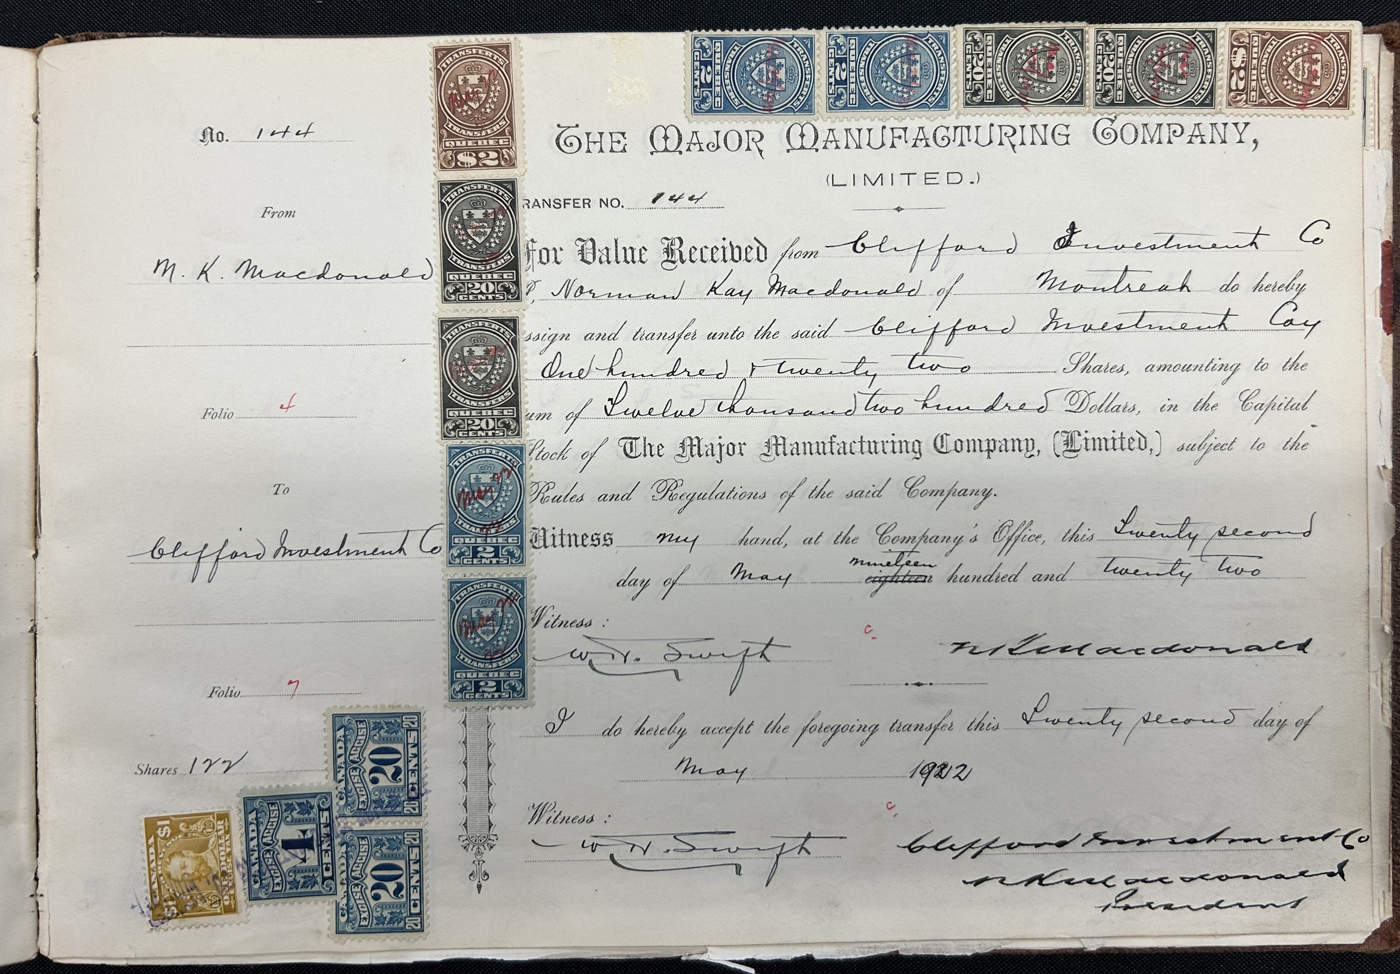 No. 144
From
N. K. Macdonald
Folio 4
To
Clifford Investment Co
Folio 7
Shares 122
TRANSFERTS
TRANSFERS
QUEBEC
$2
TRANSFERTS
TRANSFERS
QUEBEC
20
CENTS
TRANSFERTS
TRANSFERS
QUEBEC
20
CENTS
TRANSFERTS
May 22
TRANSFERS
QUEBEC
2
CENTS
TRANSFERTS
May 22
TRANSFERS
QUEBEC
2
CENTS
CANADA
EXCISE ACCISE
20
CENTS
CANADA
EXCISE ACCISE
4
CENTS
CANADA
EXCISE ACCISE
20
CENTS
CANADA
$1
ONE DOLLAR
QUEBEC
2
CENTS
QUEBEC
2
CENTS
QUEBEC
20
CENTS
QUEBEC
20
CENTS
QUEBEC
$2
THE MAJOR MANUFACTURING COMPANY,
(LIMITED.)
RANSFER NO. 144
For Value Received from Clifford Investment Co
I, Norman Kay Macdonald of Montreal do hereby
ssign and transfer unto the said Clifford Investment Coy
One hundred & twenty two Shares, amounting to the
um of Twelve thousand two hundred Dollars, in the Capital
Stock of The Major Manufacturing Company, (Limited,) subject to the
Rules and Regulations of the said Company.
Witness my hand, at the Company's Office, this Twenty second
nineteen
day of May eighteen hundred and twenty two
Witness :
W. H. Swift N K Macdonald
I do hereby accept the foregoing transfer this Twenty second day of
May 1922
Witness :
W. H. Swift Clifford Investment Co
N K Macdonald
President